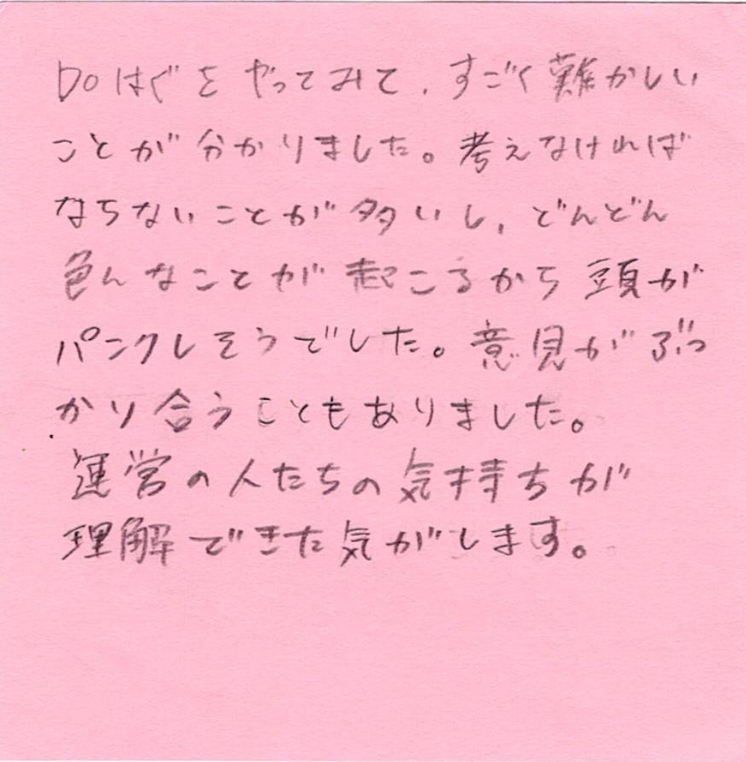 Doはぐをやってみて、すごく難かしい
ことが分かりました。考えなければ
ならないことが多いし、どんどん
色んなことが起こるから頭が
パンクしそうでした。意見がぶつ
かり合うこともありました。
運営の人たちの気持ちが
理解できた気がします。